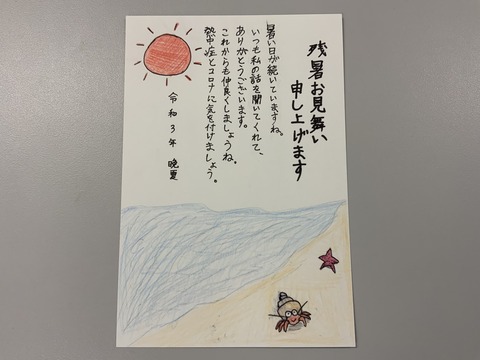 残暑お見舞い
申し上げます
暑い日が続いていますね。
いつも私の話を聞いてくれて、
ありがとうございます。
これからも仲良くしましょうね。
熱中症とコロナに気を付けましょう。
令和3年 晩夏